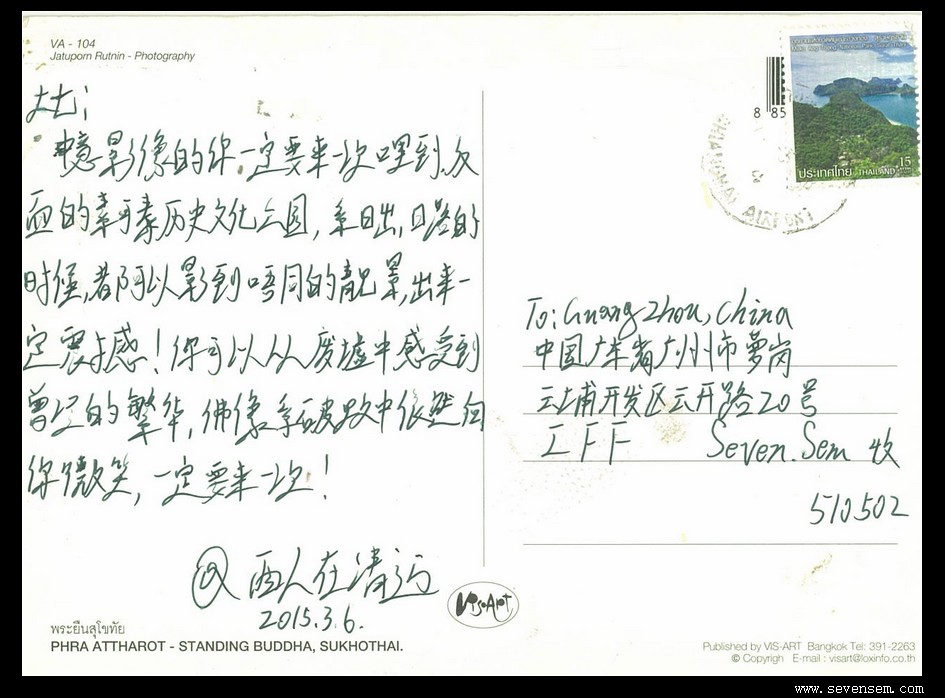 VA - 104
Jatuporn Rutnin - Photography
大七：
影像的你一定要来一次哩到
的 历史文化公园，系日出，日落的
时候，都可以影到唔同的靓景，出来一
定震撼！你可以从废墟中感受到
曾经的繁华，佛像系破败中依然向
你微笑，一定要来一次！
@ 西人在清迈
2015.3.6.
พระยืนสุโขทัย
PHRA ATTHAROT - STANDING BUDDHA, SUKHOTHAI.
8 85
ประเทศไทย THAILAND 15
AIRPORT
To: Guangzhou, China
中国广东省广州市萝岗
云埔开发区云开路20号
IFF Seven.Sem 收
510502
VisArt
Published by VIS-ART Bangkok Tel: 391-2263
© Copyrigh E-mail : visart@loxinfo.co.th
www.sevensem.com